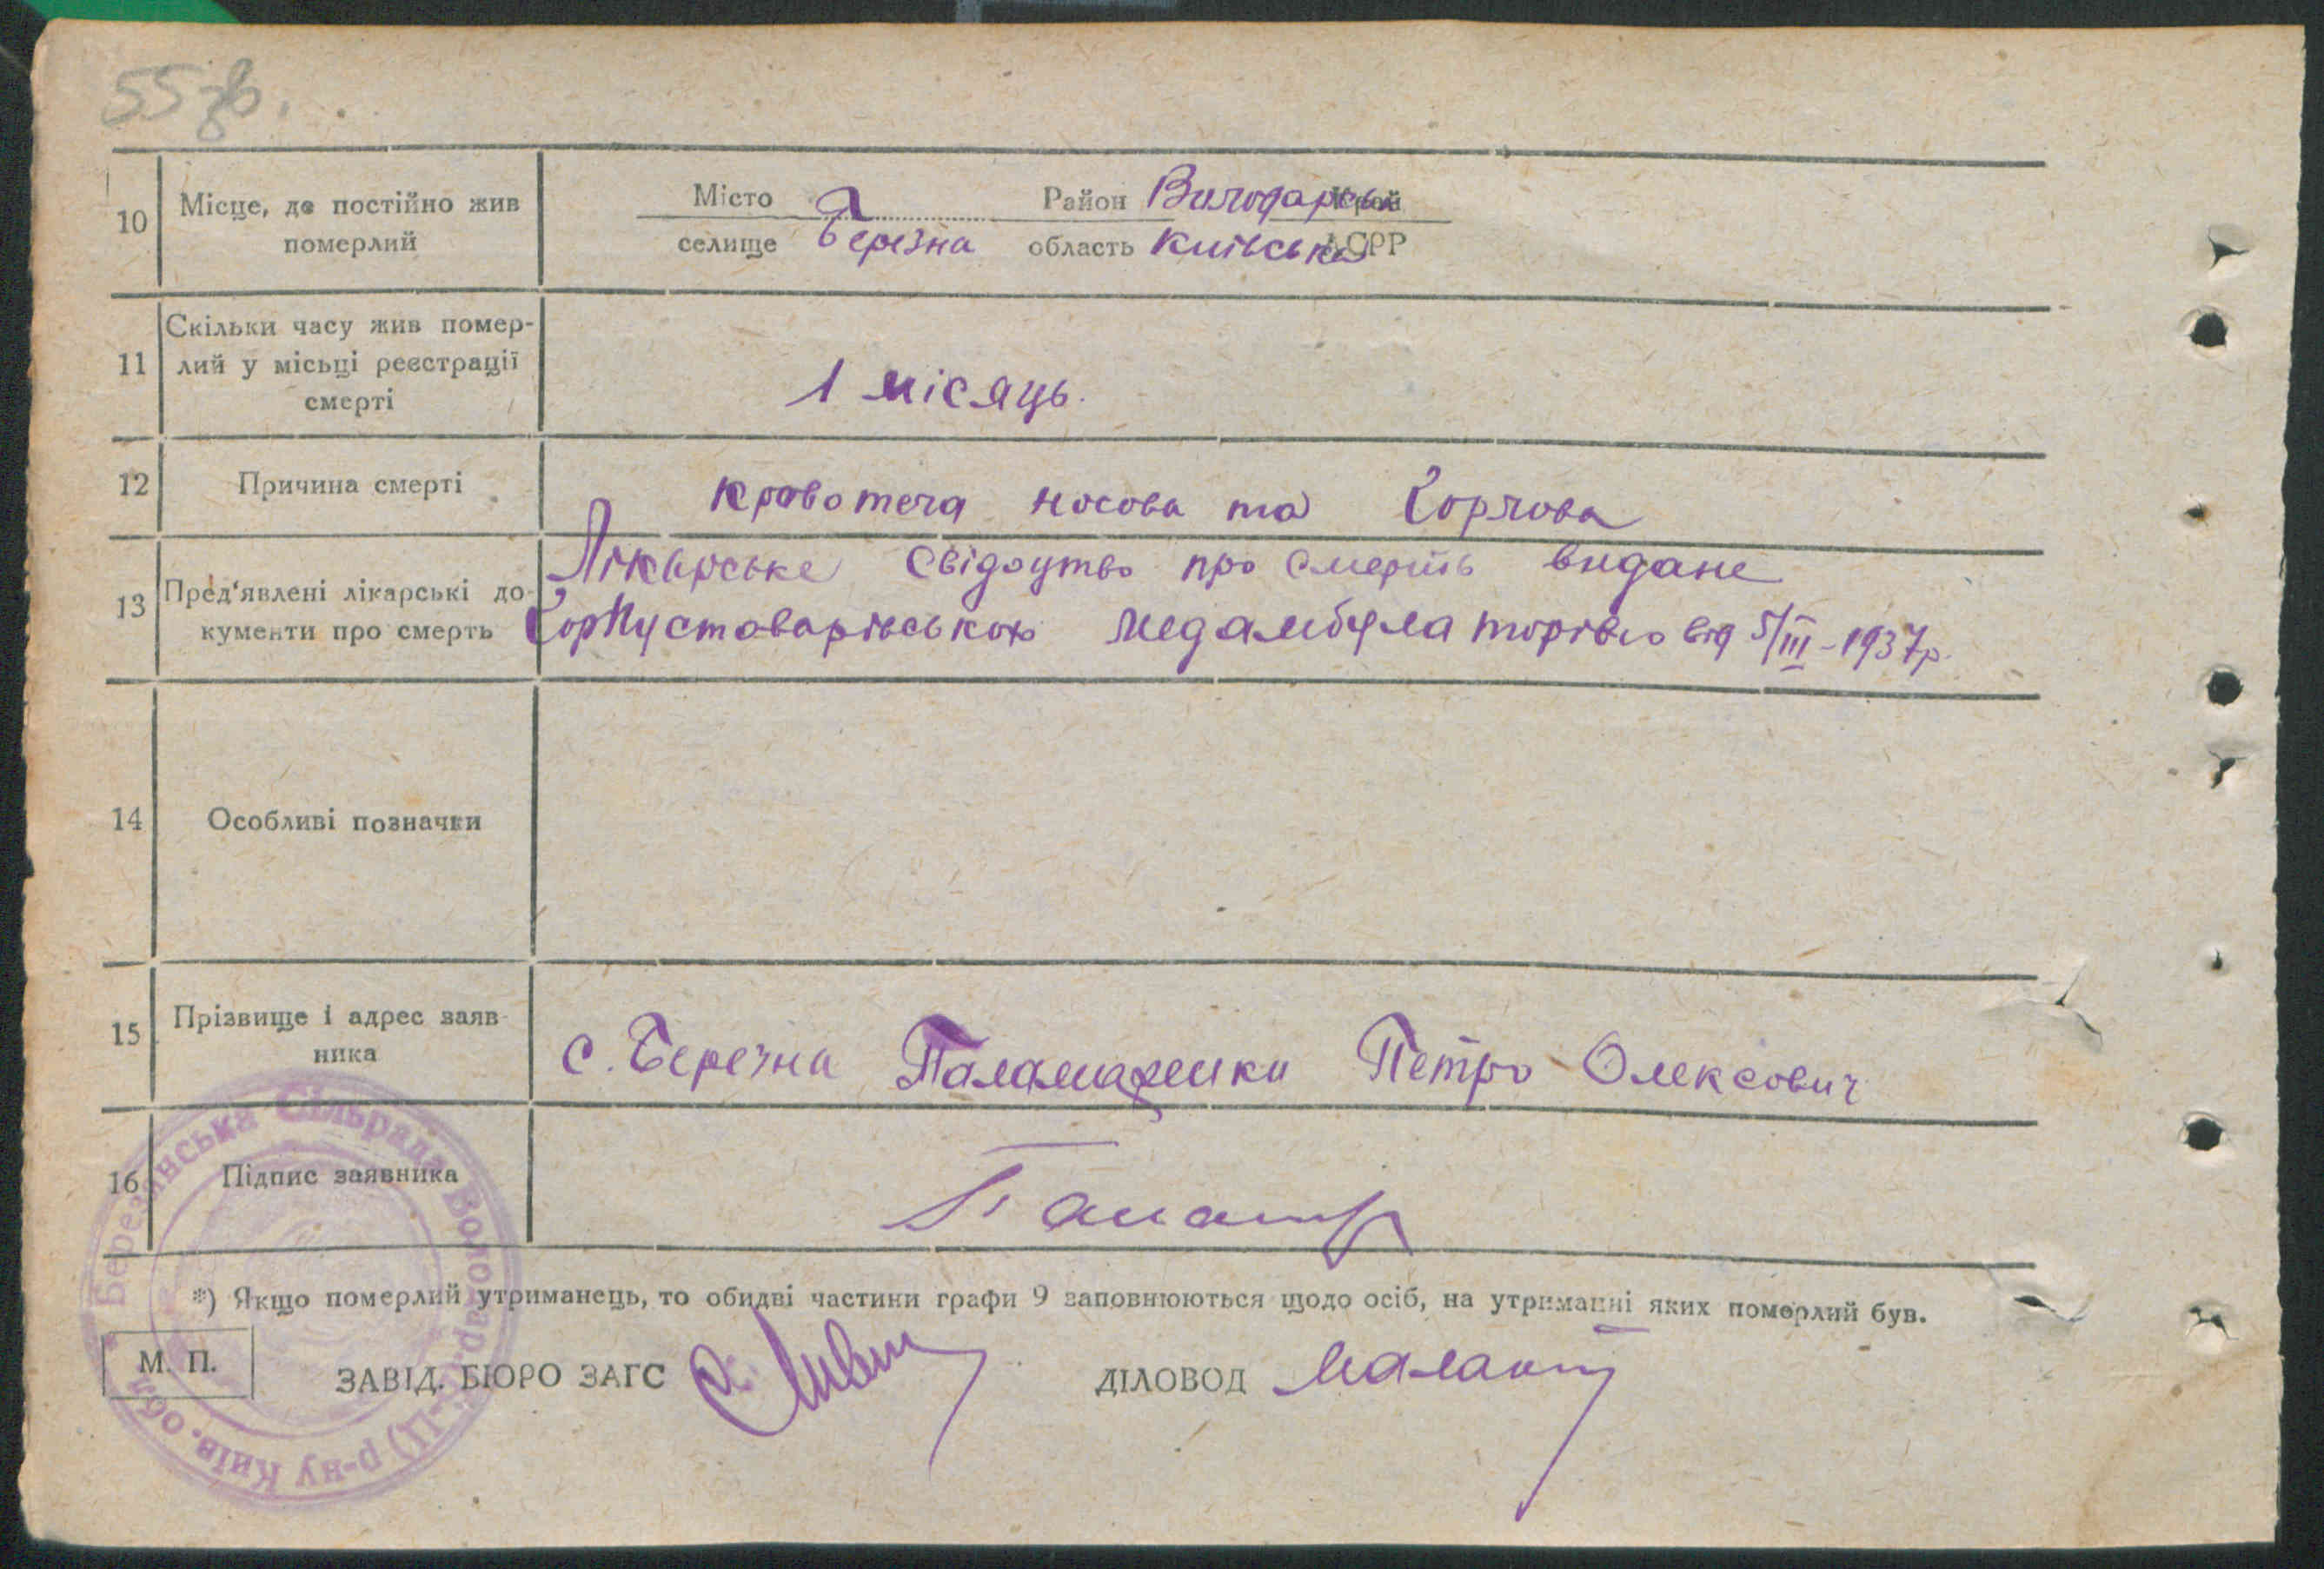 55 зв.
10 Місце, де постійно жив померлий
Місто Район Володарськ Край
селище Березна область Київська АСРР
11 Скільки часу жив помер-
лий у місьці реєстрації
смерті
1 місяць.
12 Причина смерті
кровотеча носова та горлова
13 Пред'явлені лікарські до-
кументи про смерть
Лікарське свідоцтво про смерть видане
Пустоварівською медамбулаторією від 5/III-1937р.
14 Особливі позначки
15 Прізвище і адрес заяв-
ника
с. Березна Петро Олексович
16 Підпис заявника
*) Якщо померлий утриманець, то обидві частини графи 9 заповнюються щодо осіб, на утриманні яких померлий був.
М. П.
ЗАВІД. БЮРО ЗАГС ДІЛОВОД
Березнянська Сільрада Володарськ. р-ну Київ. обл.